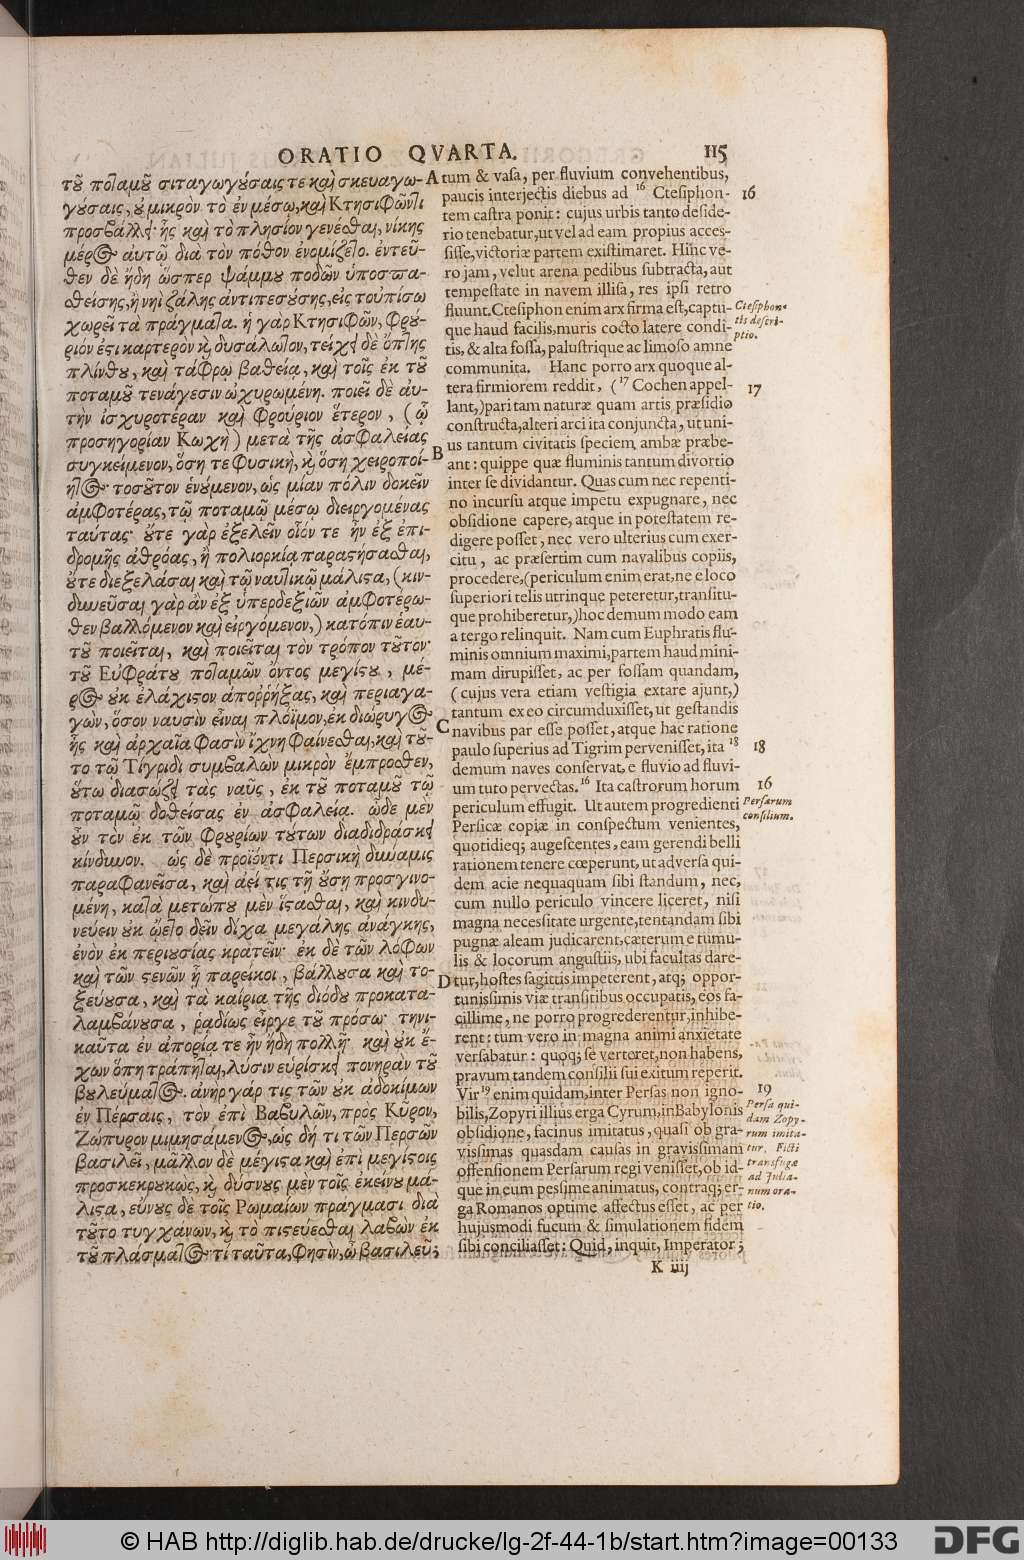 ORATIO QVARTA. 115
τοῦ ποταμοῦ σιταγωγούσαις τε καὶ σκευαγω-
γούσαις, οὐ μικρὸν τὸ ἐν μέσω, καὶ Κτησιφῶντι
προσβάλλει· ἧς καὶ τὸ πλησίον γενέσθαι, νίκης
μέρος αὐτῷ διὰ τὸν πόθον ἐνομίζετο. ἐντεῦ-
θεν δὲ ἤδη ὥσπερ ψάμμου ποδῶν ὑποσπα-
σθείσης, ἢ νηῒ ζάλης ἀντιπεσούσης, εἰς τοὐπίσω
χωρεῖ τὰ πράγματα. ἡ γὰρ Κτησιφῶν, φρού-
ριόν ἐστι καρτερὸν καὶ δυσάλωτον, τείχει δὲ ὀπτῆς
πλίνθου, καὶ τάφρῳ βαθείᾳ, καὶ τοῖς ἐκ τοῦ
ποταμοῦ τενάγεσιν ὠχυρωμένη. ποιεῖ δὲ αὐ-
τὴν ἰσχυροτέραν καὶ φρούριον ἕτερον, (ᾧ
προσηγορίαν Κωχὴ) μετὰ τῆς ἀσφαλείας
συγκείμενον, ὅση τε φυσικὴ, καὶ ὅση χειροποί-
ητος· τοσοῦτον ἑνούμενον, ὡς μίαν πόλιν δοκεῖν
ἀμφοτέρας, τῷ ποταμῷ μέσῳ διειργομένας
ταύτας· οὔτε γὰρ ἐξελεῖν οἷόν τε ἦν ἐξ ἐπι-
δρομῆς ἀθρόας, ἢ πολιορκίᾳ παραστήσασθαι,
οὔτε διεξελάσαι καὶ τῷ ναυτικῷ μάλιστα, (κιν-
δυνεῦσαι γὰρ ἂν ἐξ ὑπερδεξιῶν ἀμφοτέρω-
θεν βαλλόμενον καὶ εἰργόμενον,) κατόπιν ἑαυ-
τοῦ ποιεῖται, καὶ ποιεῖται τὸν τρόπον τοῦτον·
τοῦ Εὐφράτου ποταμῶν ὄντος μεγίστου, μέ-
ρος οὐκ ἐλάχιστον ἀποῤῥήξας, καὶ περιαγα-
γὼν, ὅσον ναυσὶν εἶναι πλόϊμον, ἐκ διώρυγος
ἧς καὶ ἀρχαῖα φασὶν ἴχνη φαίνεσθαι, καὶ τοῦ-
το τῷ Τίγριδι συμβαλὼν μικρὸν ἔμπροσθεν,
οὕτω διασώζει τὰς ναῦς, ἐκ τοῦ ποταμοῦ τῷ
ποταμῷ δοθείσας ἐν ἀσφαλεία. ὧδε μὲν
οὖν τὸν ἐκ τῶν φρουρίων τούτων διαδιδράσκει
κίνδυνον. ὡς δὲ προϊόντι Περσικὴ δύναμις
παραφανεῖσα, καὶ ἀεί τις τῇ οὔσῃ προσγινο-
μένη, κατὰ μετώπου μὲν ἵστασθαι, καὶ κινδυ-
νεύειν οὐκ ᾤετο δεῖν δίχα μεγάλης ἀνάγκης,
ἐνὸν ἐκ περιουσίας κρατεῖν· ἐκ δὲ τῶν λόφων
καὶ τῶν στενῶν ᾗ παρείκοι, βάλλουσα καὶ το-
ξεύουσα, καὶ τὰ καίρια τῆς διόδου προκατα-
λαμβάνουσα, ῥαδίως εἶργε τοῦ πρόσω· τηνι-
καῦτα ἐν ἀπορίᾳ τε ἦν ἤδη πολλῇ· καὶ οὐκ ἔ-
χων ὅπη τράπηται, λύσιν εὑρίσκει πονηρὰν τοῦ
βουλεύματος. ἀνὴρ γάρ τις τῶν οὐκ ἀδοκίμων
ἐν Πέρσαις, τὸν ἐπὶ Βαβυλῶν, πρὸς Κῦρον,
Ζώπυρον μιμησάμενος, ὡς δή τι τῶν Περσῶν
βασιλεῖ, μᾶλλον δὲ μέγιστα καὶ ἐπὶ μεγίστοις
προσκεκρουκὼς, καὶ δύσνους μὲν τοῖς ἐκείνου μά-
λιστα, εὔνους δὲ τοῖς Ῥωμαίων πράγμασι διὰ
τοῦτο τυγχάνων, καὶ τὸ πιστεύεσθαι λαβὼν ἐκ
τοῦ πλάσματος· τί ταῦτα, φησὶν, ὦ βασιλεῦ;
A
B
C
D
tum & vasa, per fluvium convehentibus,
paucis interjectis diebus ad 16 Ctesiphon-
tem castra ponit: cujus urbis tanto deside-
rio tenebatur, ut vel ad eam propius acces-
sisse, victoriæ partem existimaret. Hinc ve-
ro jam, velut arena pedibus subtracta, aut
tempestate in navem illisa, res ipsi retro
fluunt. Ctesiphon enim arx firma est, captu-
que haud facilis, muris cocto latere condi-
tis, & alta fossa, palustrique ac limoso amne
communita. Hanc porro arx quoque al-
tera firmiorem reddit, (17 Cochen appel-
lant,) pari tam naturæ quam artis præsidio
constructa, alteri arci ita conjuncta, ut uni-
us tantum civitatis speciem ambæ præbe-
ant: quippe quæ fluminis tantum divortio
inter se dividantur. Quas cum nec repenti-
no incursu atque impetu expugnare, nec
obsidione capere, atque in potestatem re-
digere posset, nec vero ulterius cum exer-
citu, ac præsertim cum navalibus copiis,
procedere, (periculum enim erat, ne e loco
superiori telis utrinque peteretur, transitu-
que prohiberetur,) hoc demum modo eam
a tergo relinquit. Nam cum Euphratis flu-
minis omnium maximi, partem haud mini-
mam dirupisset, ac per fossam quandam,
(cujus vera etiam vestigia extare ajunt,)
tantum ex eo circumduxisset, ut gestandis
navibus par esse posset, atque hac ratione
paulo superius ad Tigrim pervenisset, ita 18
demum naves conservat, e fluvio ad fluvi-
um tuto pervectas. 16 Ita castrorum horum
periculum effugit. Ut autem progredienti
Persicæ copiæ in conspectum venientes,
quotidieq; augescentes, eam gerendi belli
rationem tenere cœperunt, ut adversa qui-
dem acie nequaquam sibi standum, nec,
cum nullo periculo vincere liceret, nisi
magna necessitate urgente, tentandam sibi
pugnæ aleam judicarent, cæterum e tumu-
lis & locorum angustiis, ubi facultas dare-
tur, hostes sagittis impeterent, atq; oppor-
tunissimis viæ transitibus occupatis, eos fa-
cillime, ne porro progrederentur, inhibe-
rent: tum vero in magna animi anxietate
versabatur: quoq; se verteret, non habens,
pravum tandem consilii sui exitum reperit.
Vir 19 enim quidam, inter Persas non igno-
bilis, Zopyri illius erga Cyrum, in Babylonis
obsidione, facinus imitatus, quasi ob gra-
vissimas quasdam causas in gravissimam
offensionem Persarum regi venisset, ob id-
que in eum pessime animatus, contraq; er-
ga Romanos optime affectus esset, ac per
hujusmodi fucum & simulationem fidem
sibi conciliasset: Quid, inquit, Imperator;
K iiij
16
Ctesiphon-
tis descri-
ptio.
17
18
16
Persarum
consilium.
19
Persa qui-
dam Zopy-
rum imita-
tur. Ficti
transfugæ
ad Julia-
num ora-
tio.
© HAB http://diglib.hab.de/drucke/lg-2f-44-1b/start.htm?image=00133
DFG